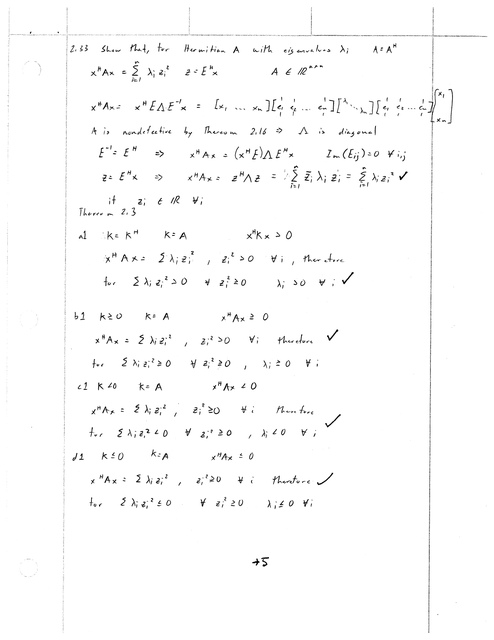 2.33 Show that, for Hermitian A with eigenvalues λi A = A^H
x^H A x = Σ_{i=1}^{n} λi zi² z = E^H x A ∈ ℝ^{n×n}
x^H A x = x^H E Λ E⁻¹ x = [x1 ... xn] [e1 e2 ... en] [λ1 ⋱ λn] [e1 e2 ... en] [x1 ⋮ xn]
A is nondefective by Theorem 2.16 ⇒ Λ is diagonal
E⁻¹ = E^H ⇒ x^H A x = (x^H E) Λ E^H x Im(Eij) = 0 ∀ i,j
z = E^H x ⇒ x^H A x = z^H Λ z = Σ_{i=1}^{n} z̄i λi zi = Σ_{i=1}^{n} λi zi² ✓
if zi ∈ ℝ ∀i
Theorem 2.3
a) K = K^H K = A x^H K x > 0
x^H A x = Σ λi zi² , zi² > 0 ∀ i , therefore
for Σ λi zi² > 0 ∀ zi² ≥ 0 λi > 0 ∀ i ✓
b) K ≥ 0 K = A x^H A x ≥ 0
x^H A x = Σ λi zi² , zi² > 0 ∀i therefore ✓
for Σ λi zi² ≥ 0 ∀ zi² ≥ 0 , λi ≥ 0 ∀ i
c) K < 0 K = A x^H A x < 0
x^H A x = Σ λi zi² , zi² ≥ 0 ∀ i therefore ✓
for Σ λi zi² < 0 ∀ zi² ≥ 0 , λi < 0 ∀ i
d) K ≤ 0 K = A x^H A x ≤ 0
x^H A x = Σ λi zi² , zi² ≥ 0 ∀ i therefore ✓
for Σ λi zi² ≤ 0 ∀ zi² ≥ 0 λi ≤ 0 ∀i
+5